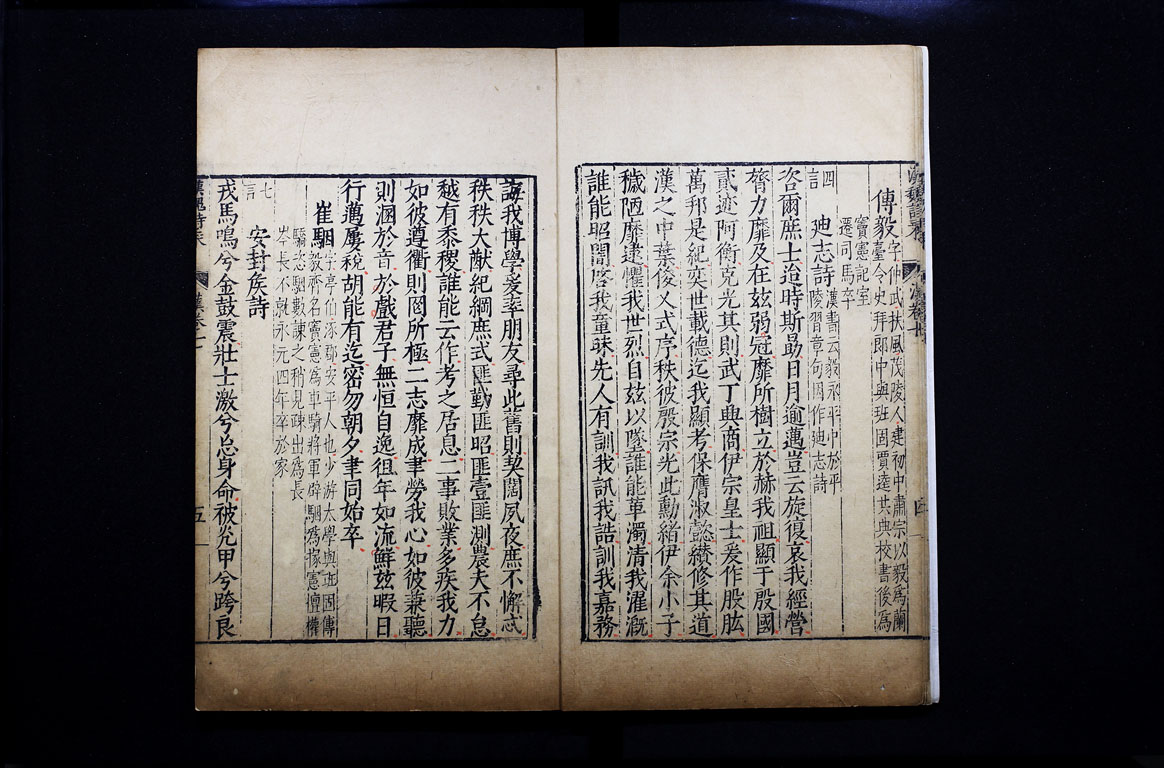 傅毅
字仲武扶風茂陵人建初中肅宗以毅為蘭
臺令史拜郎中與班固賈逵共典校書後為
竇憲記室
遷司馬卒
四言
迪志詩
漢書云毅永平中於平
陵習章句因作迪志詩
咨爾庶士迨時斯勗日月逾邁豈云旋復哀我經營
膂力靡及在玆弱冠靡所樹立於赫我祖顯于殷國
貳迹阿衡克光其則武丁興商伊宗皇士爰作股肱
萬邦是紀奕世載德迄我顯考保膺淑懿纘修其道
漢之中葉俊乂式序秩彼殷宗光此勳緒伊余小子
穢陋靡逮懼我世烈自玆以墜誰能革濁清我濯溉
誰能昭闇啓我童昧先人有訓我訊我誥訓我嘉務
誨我博學爰率朋友尋此舊則契闊夙夜庶不懈忒
秩秩大猷紀綱庶式匪勤匪昭匪壹匪測農夫不怠
越有黍稷誰能云作考之居息二事敗業多疾我力
如彼遵衢則罔所極二志靡成聿勞我心如彼兼聽
則溷於音於戲君子無恒自逸徂年如流鮮玆暇日
行邁屢稅胡能有迄密勿朝夕聿同始卒
崔駰
字亭伯涿郡安平人也少游太學與班固傅
毅齊名竇憲為車騎將軍辟駰為掾憲擅權
驕恣駰數諫之稍見疎出為長
岑長不就永元四年卒於家
七言
安封矦詩
戎馬鳴兮金鼓震壯士激兮忘身命被光甲兮跨良
五